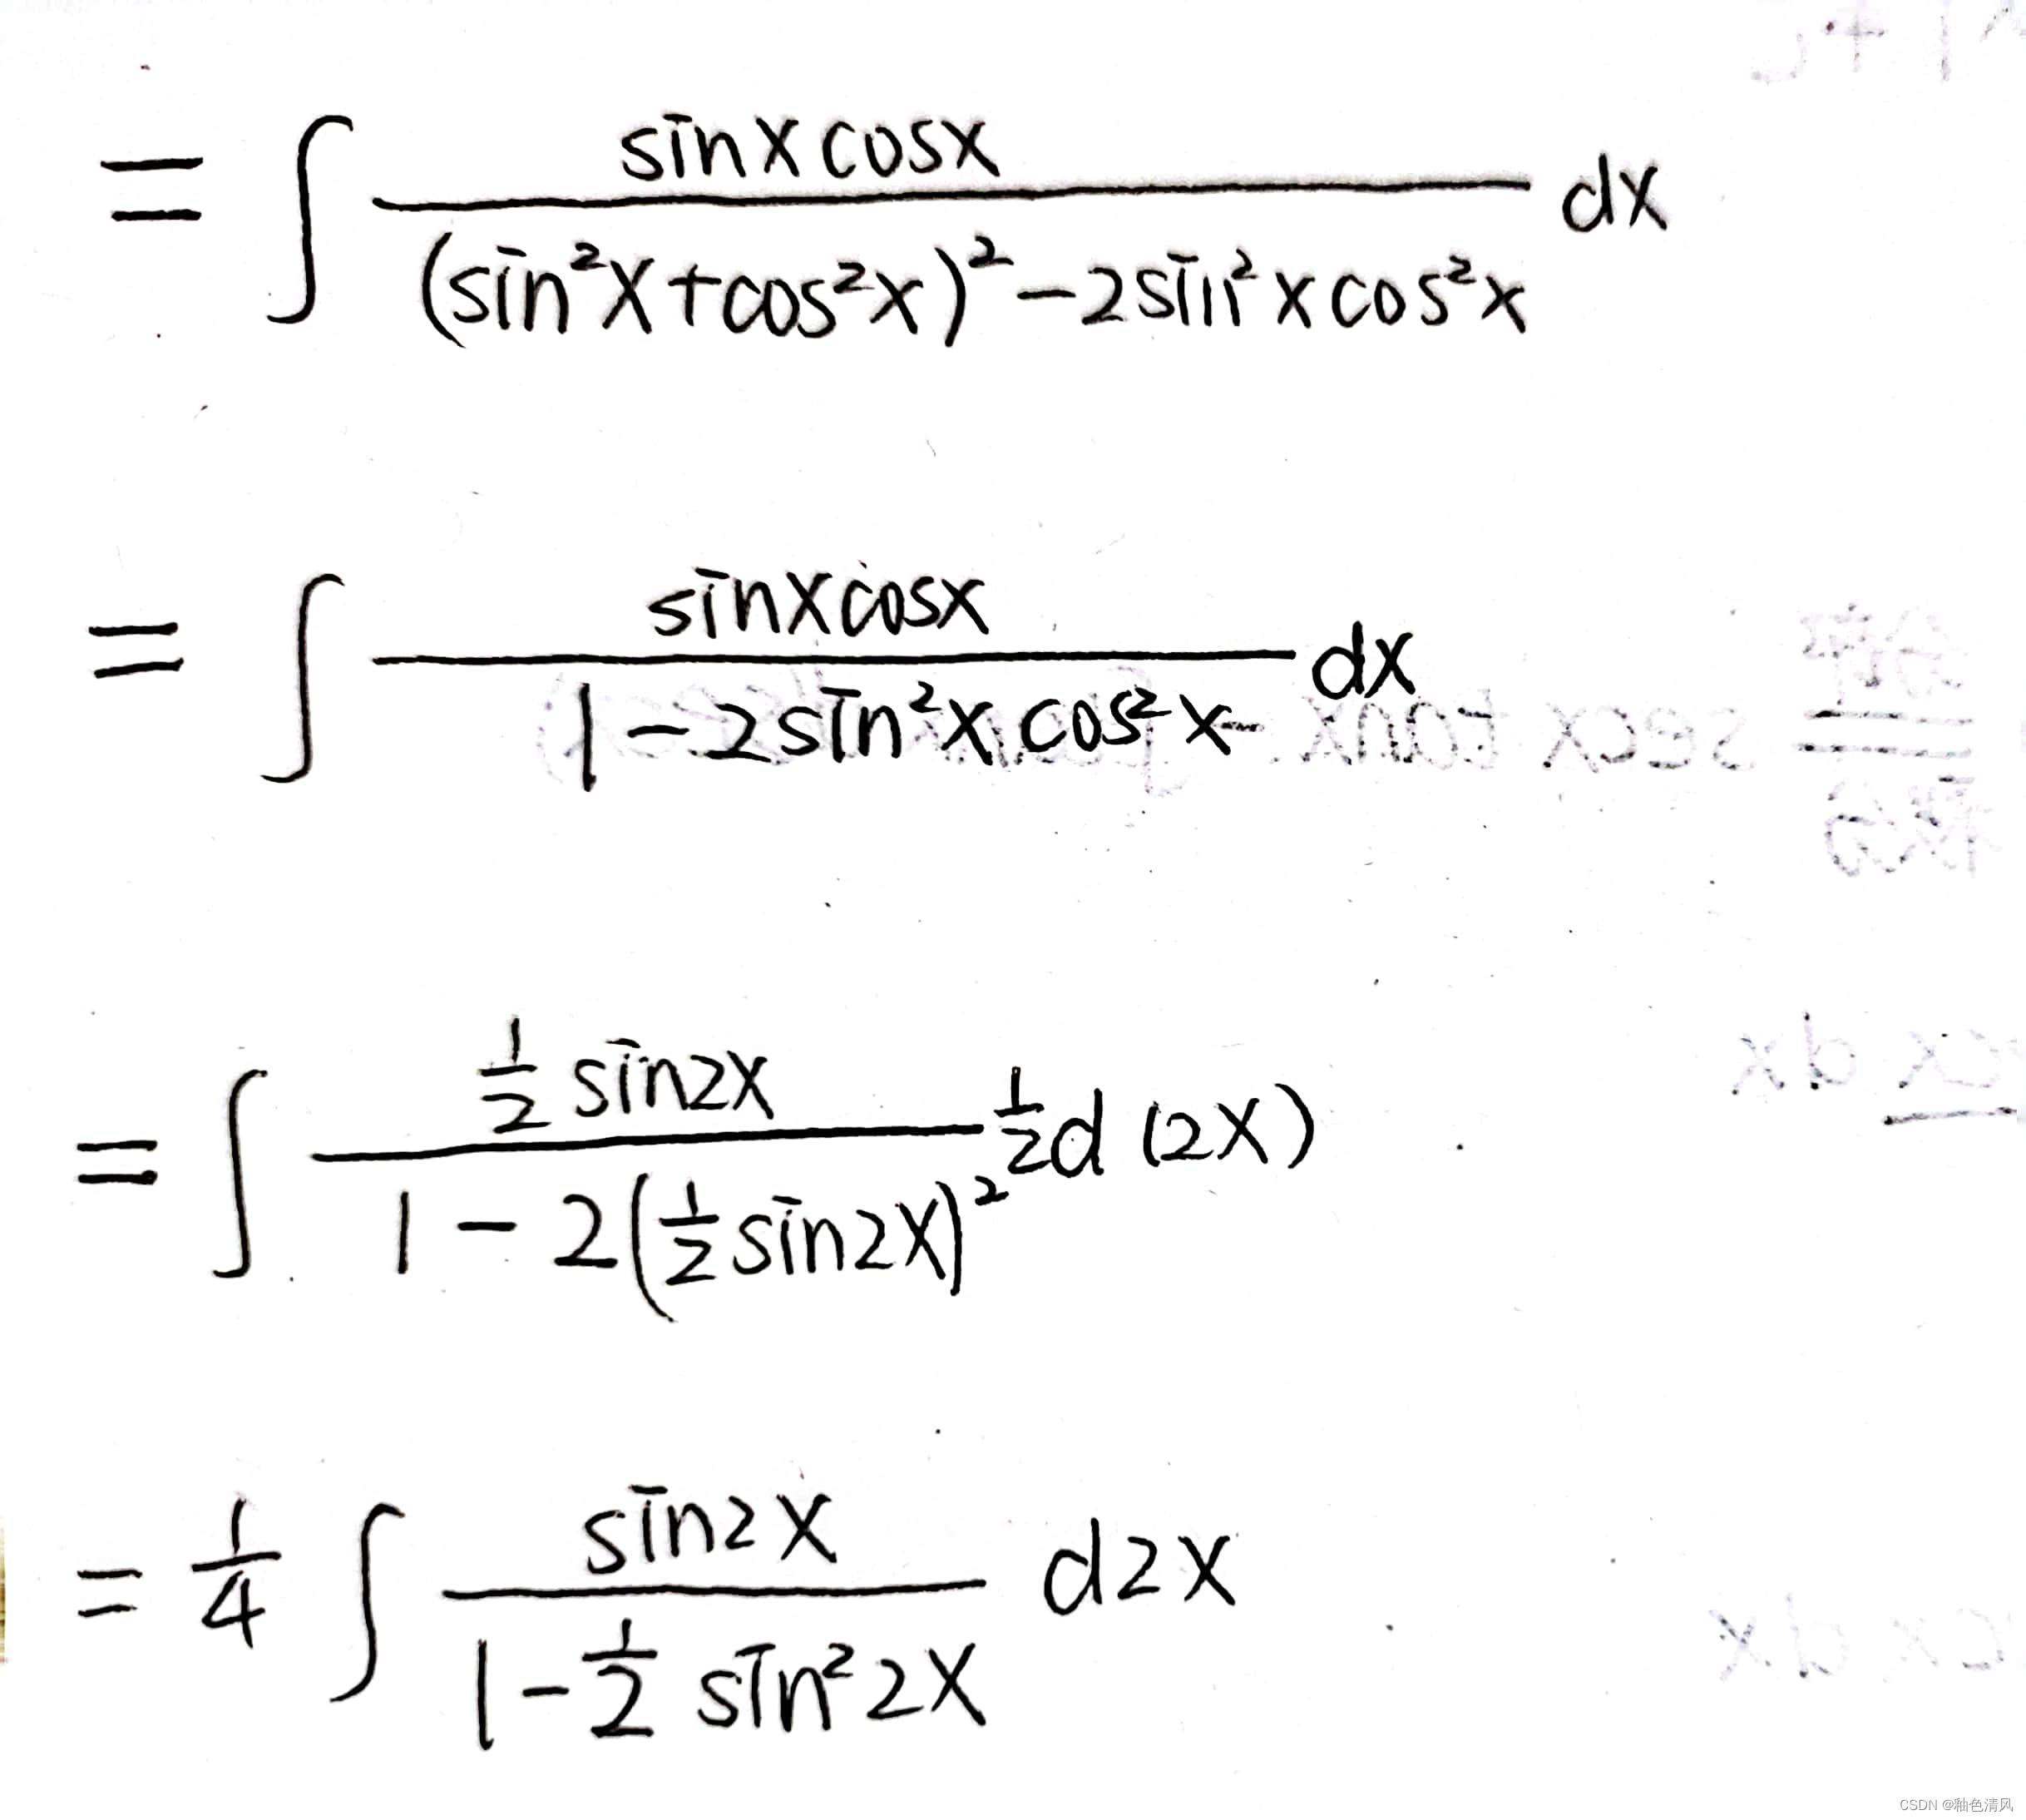 = ∫ sinxcosx / ((sin²x+cos²x)² - 2sin²xcos²x) dx
= ∫ sinxcosx / (1 - 2sin²x cos²x) dx
= ∫ (½ sin2x) / (1 - 2(½ sin2x)²) ½ d(2x)
= ¼ ∫ sin2x / (1 - ½ sin²2x) d2x
CSDN @釉色清风